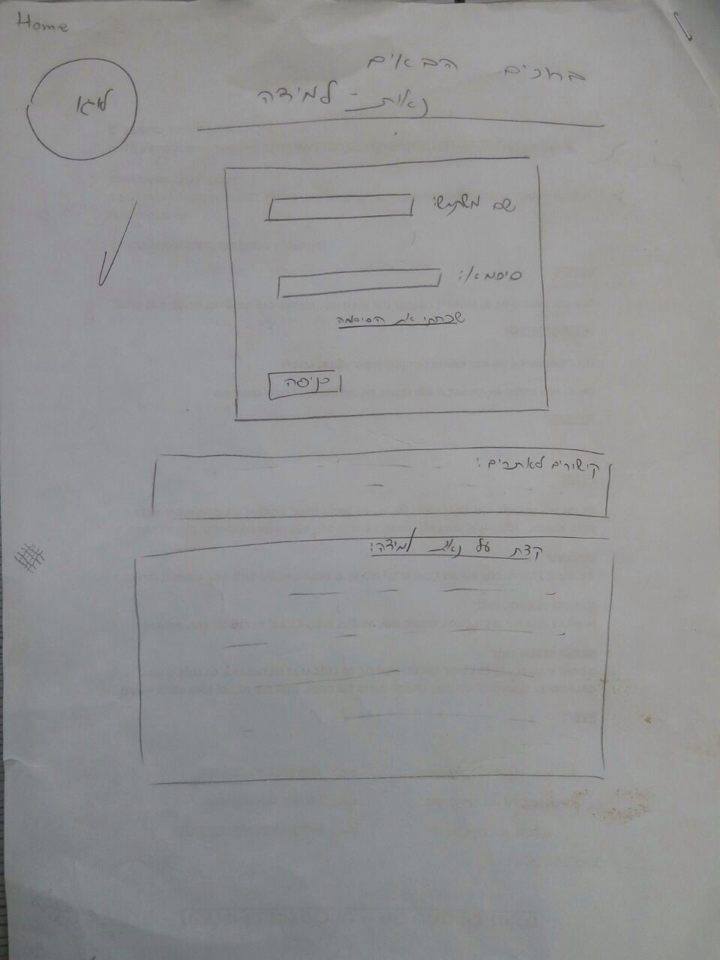 Home
ברוכים הבאים
נאות - למידה
לוגו
שם משתמש:
סיסמא:
שכחתי את הסיסמה
כניסה
קישורים לאתרים:
קצת על נאות למידה: